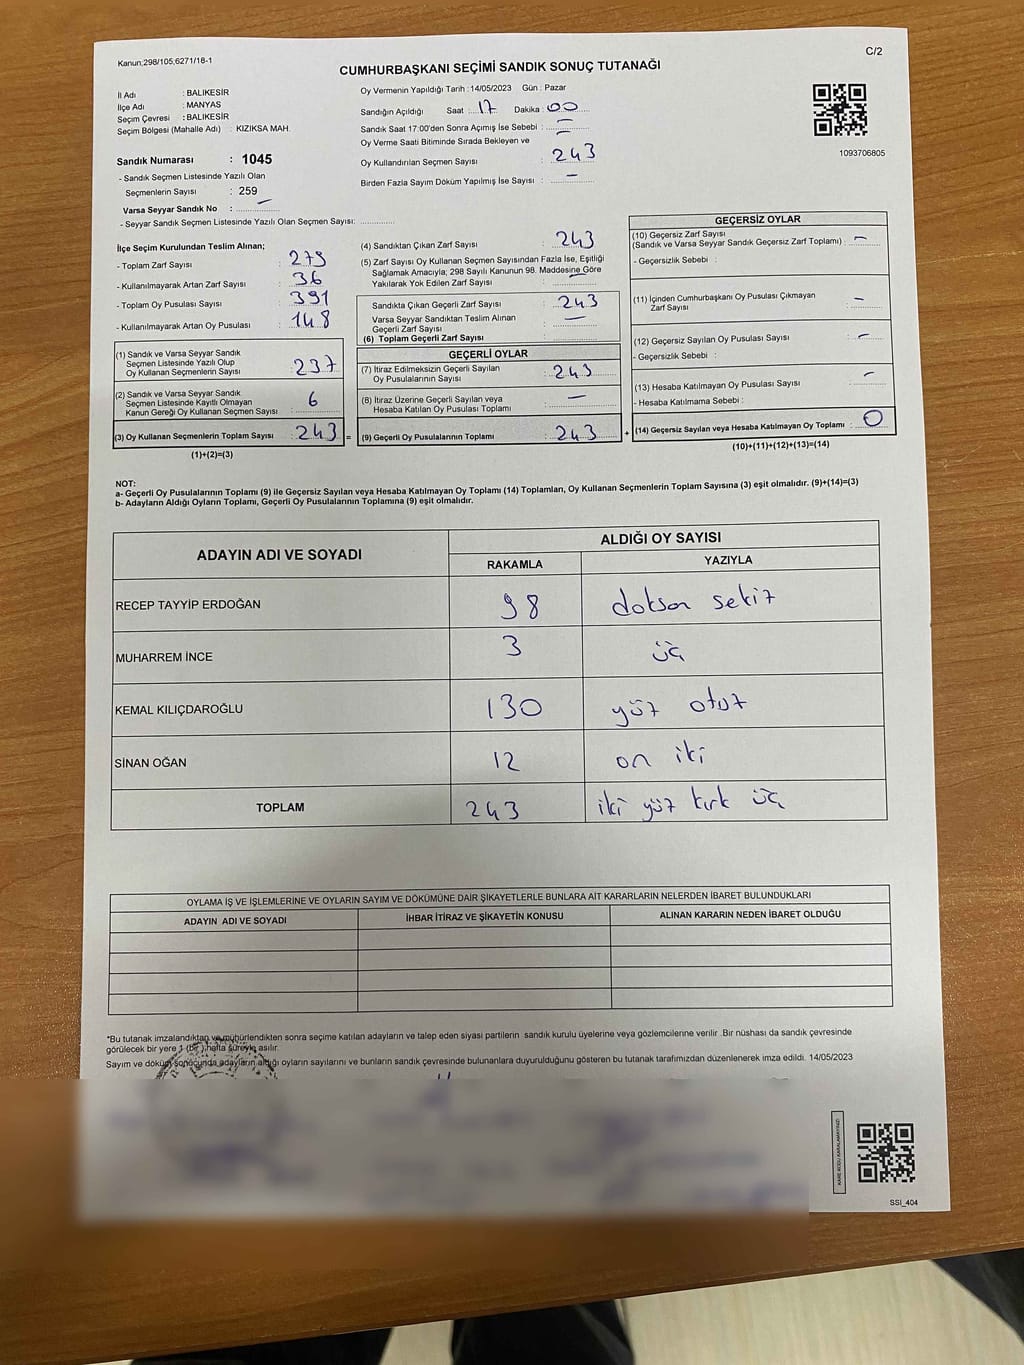 Kanun;298/105;6271/18-1
C/2
CUMHURBAŞKANI SEÇİMİ SANDIK SONUÇ TUTANAĞI
İl Adı : BALIKESİR
İlçe Adı : MANYAS
Seçim Çevresi : BALIKESİR
Seçim Bölgesi (Mahalle Adı) : KIZIKSA MAH.
Sandık Numarası : 1045
- Sandık Seçmen Listesinde Yazılı Olan
Seçmenlerin Sayısı : 259
Varsa Seyyar Sandık No : –
- Seyyar Sandık Seçmen Listesinde Yazılı Olan Seçmen Sayısı: ..............
Oy Vermenin Yapıldığı Tarih : 14/05/2023 Gün : Pazar
Sandığın Açıldığı Saat : 17 Dakika : 00
Sandık Saat 17:00'den Sonra Açımış İse Sebebi : –
Oy Verme Saati Bitiminde Sırada Bekleyen ve –
Oy Kullandırılan Seçmen Sayısı : 243
Birden Fazla Sayım Döküm Yapılmış İse Sayısı : –
1093706805
İlçe Seçim Kurulundan Teslim Alınan;
- Toplam Zarf Sayısı : 279
- Kullanılmayarak Artan Zarf Sayısı : 36
- Toplam Oy Pusulası Sayısı : 391
- Kullanılmayarak Artan Oy Pusulası : 148
(1) Sandık ve Varsa Seyyar Sandık
Seçmen Listesinde Yazılı Olup
Oy Kullanan Seçmenlerin Sayısı : 237
(2) Sandık ve Varsa Seyyar Sandık
Seçmen Listesinde Kayıtlı Olmayan
Kanun Gereği Oy Kullanan Seçmen Sayısı : 6
(3) Oy Kullanan Seçmenlerin Toplam Sayısı : 243 =
(1)+(2)=(3)
(4) Sandıktan Çıkan Zarf Sayısı : 243
(5) Zarf Sayısı Oy Kullanan Seçmen Sayısından Fazla İse, Eşitliği
Sağlamak Amacıyla; 298 Sayılı Kanunun 98. Maddesine Göre
Yakılarak Yok Edilen Zarf Sayısı : –
Sandıkta Çıkan Geçerli Zarf Sayısı : 243
Varsa Seyyar Sandıktan Teslim Alınan
Geçerli Zarf Sayısı : –
(6) Toplam Geçerli Zarf Sayısı :
GEÇERLİ OYLAR
(7) İtiraz Edilmeksizin Geçerli Sayılan
Oy Pusulalarının Sayısı : 243
(8) İtiraz Üzerine Geçerli Sayılan veya
Hesaba Katılan Oy Pusulası Toplamı : –
(9) Geçerli Oy Pusulalarının Toplamı : 243 +
GEÇERSİZ OYLAR
(10) Geçersiz Zarf Sayısı
(Sandık ve Varsa Seyyar Sandık Geçersiz Zarf Toplamı) : –
- Geçersizlik Sebebi :
(11) İçinden Cumhurbaşkanı Oy Pusulası Çıkmayan
Zarf Sayısı : –
(12) Geçersiz Sayılan Oy Pusulası Sayısı : –
- Geçersizlik Sebebi :
(13) Hesaba Katılmayan Oy Pusulası Sayısı : –
- Hesaba Katılmama Sebebi :
(14) Geçersiz Sayılan veya Hesaba Katılmayan Oy Toplamı : 0
(10)+(11)+(12)+(13)=(14)
NOT:
a- Geçerli Oy Pusulalarının Toplamı (9) ile Geçersiz Sayılan veya Hesaba Katılmayan Oy Toplamı (14) Toplamları, Oy Kullanan Seçmenlerin Toplam Sayısına (3) eşit olmalıdır. (9)+(14)=(3)
b- Adayların Aldığı Oyların Toplamı, Geçerli Oy Pusulalarının Toplamına (9) eşit olmalıdır.
ADAYIN ADI VE SOYADI
ALDIĞI OY SAYISI
RAKAMLA YAZIYLA
RECEP TAYYİP ERDOĞAN 98 doksan sekiz
MUHARREM İNCE 3 üç
KEMAL KILIÇDAROĞLU 130 yüz otuz
SİNAN OĞAN 12 on iki
TOPLAM 243 iki yüz kırk üç
OYLAMA İŞ VE İŞLEMLERİNE VE OYLARIN SAYIM VE DÖKÜMÜNE DAİR ŞİKAYETLERLE BUNLARA AİT KARARLARIN NELERDEN İBARET BULUNDUKLARI
ADAYIN ADI VE SOYADI İHBAR İTİRAZ VE ŞİKAYETİN KONUSU ALINAN KARARIN NEDEN İBARET OLDUĞU
*Bu tutanak imzalandıktan ve mühürlendikten sonra seçime katılan adayların ve talep eden siyasi partilerin sandık kurulu üyelerine veya gözlemcilerine verilir .Bir nüshası da sandık çevresinde
görülecek bir yere 1 (bir) hafta süreyle asılır.
Sayım ve döküm sonucunda adayların aldığı oyların sayılarını ve bunların sandık çevresinde bulunanlara duyurulduğunu gösteren bu tutanak tarafımızdan düzenlenerek imza edildi. 14/05/2023
KARE KODU KARALAMAYINIZ!
SSI_404